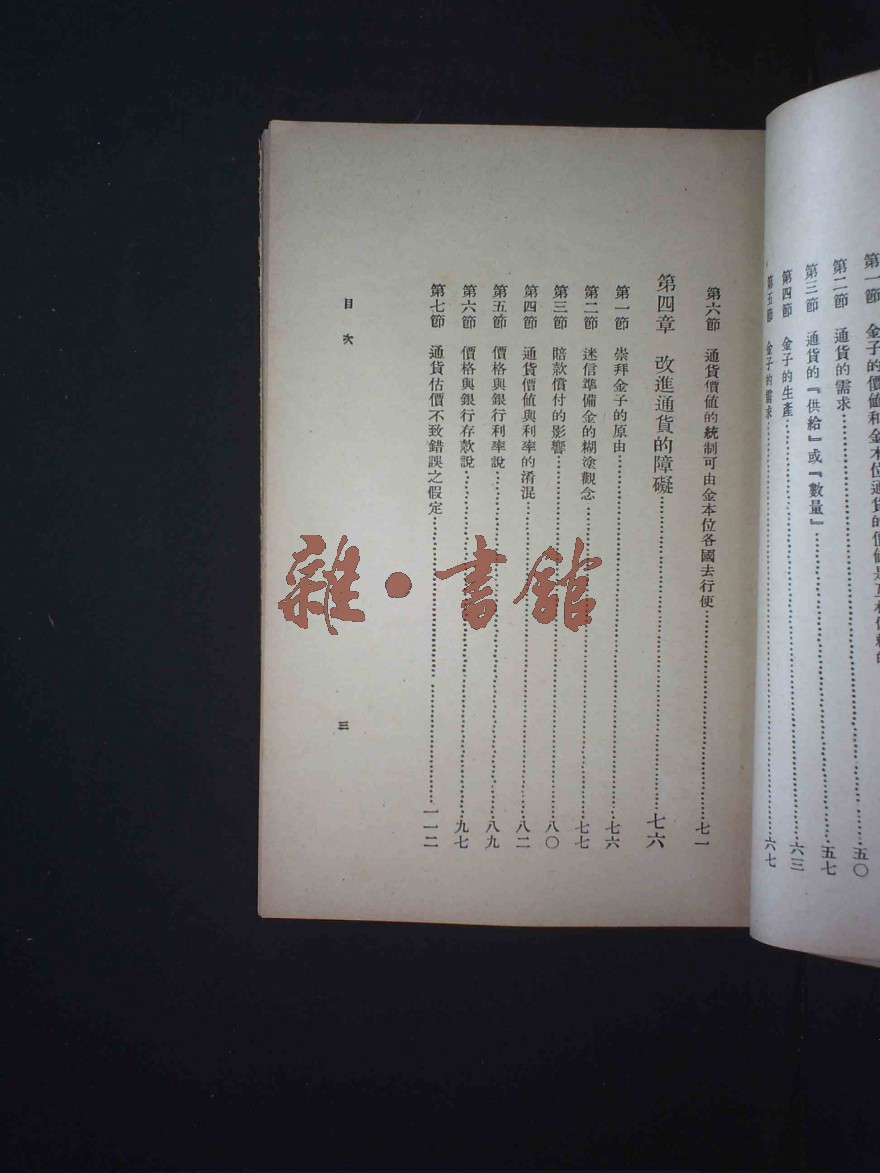 第一節　金子的價值和金本位通貨的價値是互相依賴的
第二節　通貨的需求……五〇
第三節　通貨的『供給』或『數量』……五七
第四節　金子的生產……六三
第五節　金子的需求……六七
第六節　通貨價値的統制可由金本位各國去行使……七一
第四章　改進通貨的障礙……七六
第一節　崇拜金子的原由……七六
第二節　迷信準備金的糊塗觀念……七七
第三節　賠款償付的影響……八〇
第四節　通貨價値與利率的淆混……八二
第五節　價格與銀行利率說……八九
第六節　價格與銀行存款說……九七
第七節　通貨估價不致錯誤之假定……一一二
目次
三
雜·書館